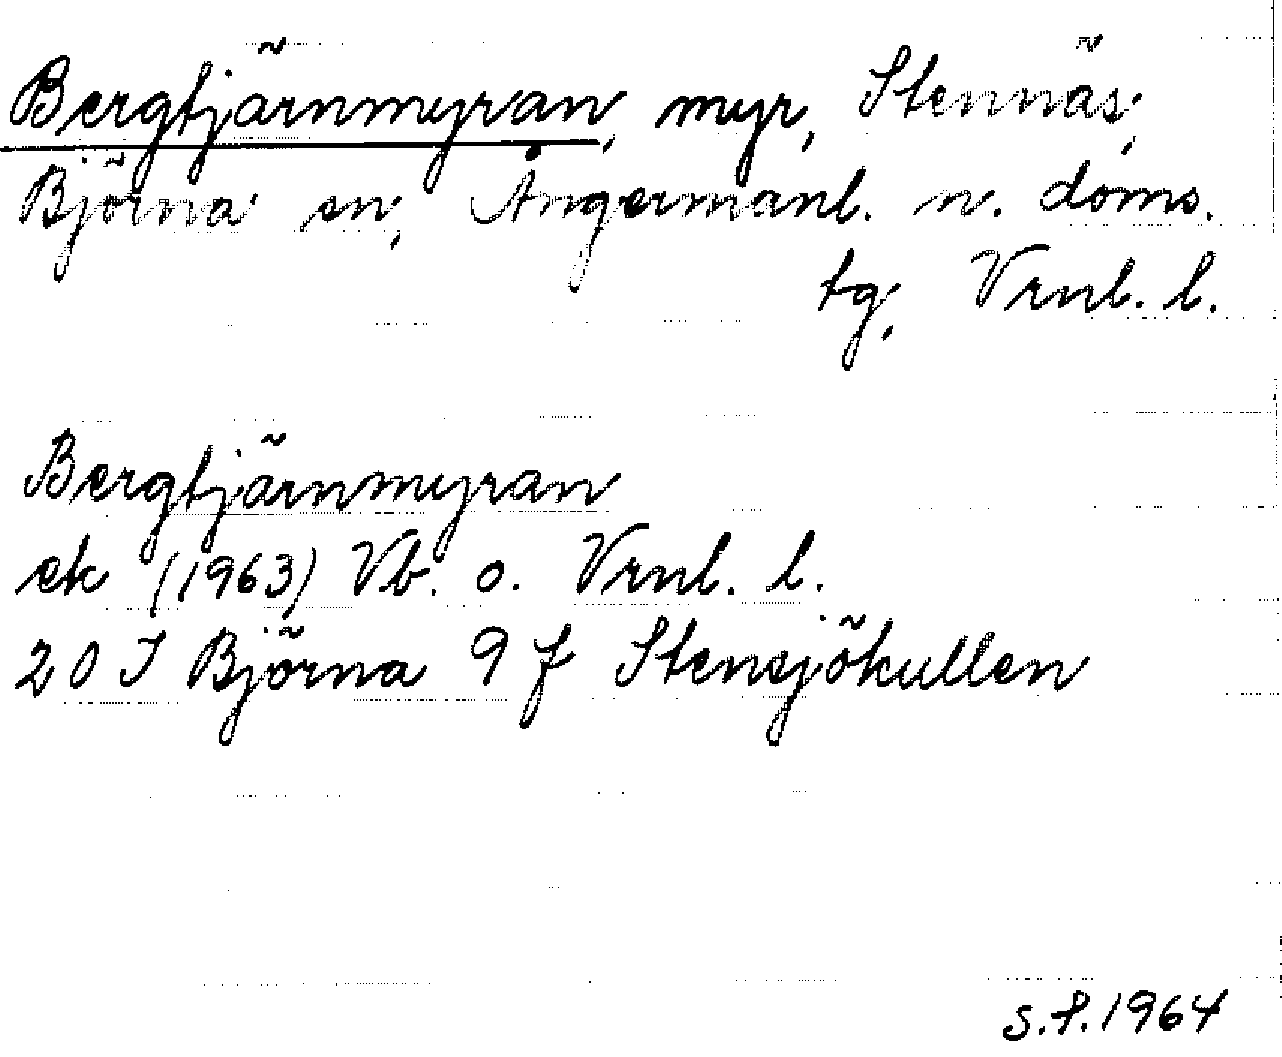 Bergtjärnmyran, myr, Stennäs,
Björna sn, Ångermanl. n. doms.
tg, Vrnl. l.
Bergtjärnmyran
ek (1963) Vb. o. Vrnl. l.
20 I Björna 9 f Stensjökullen
S.P. 1964